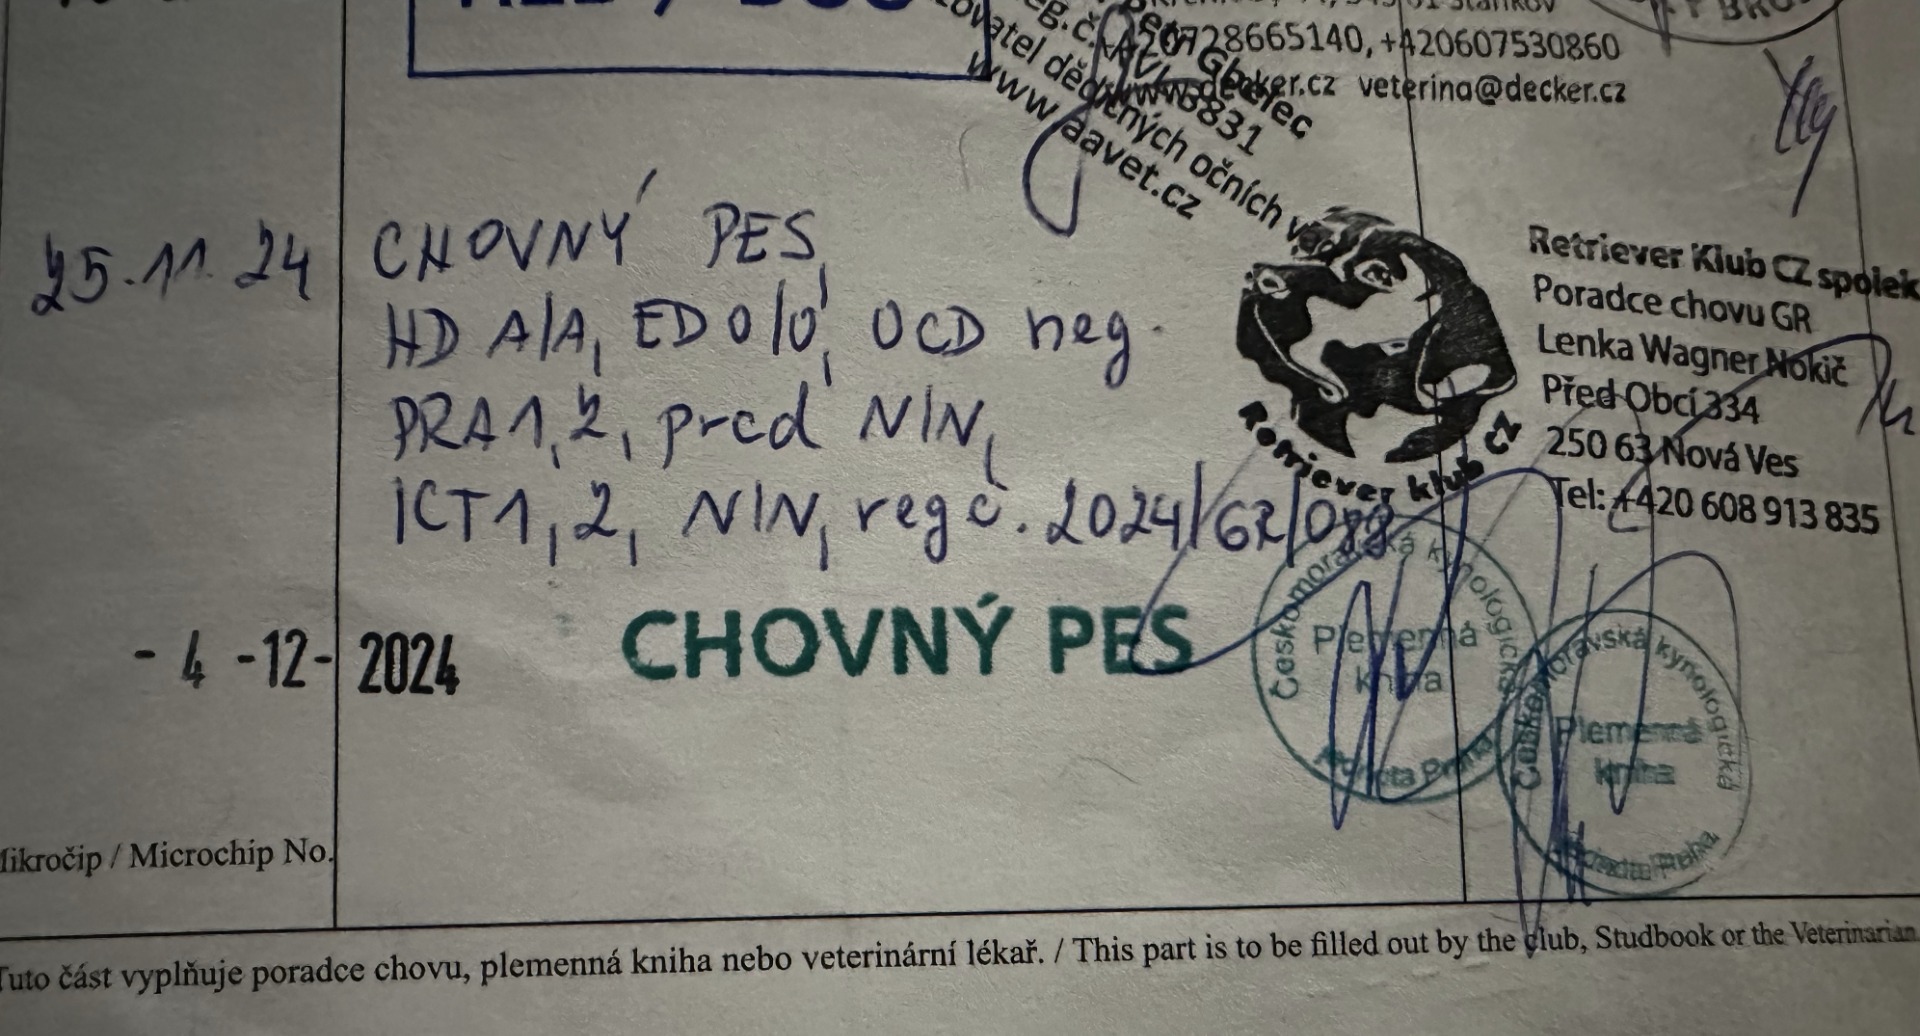 +420728665140, +420607530860
www.decker.cz veterina@decker.cz
dědičných očních vad
www.aavet.cz
25.11.24
CHOVNÝ PES,
HD A/A, ED 0/0, OCD neg.
PRA1,2, prcd N/N,
ICT1,2, N/N, reg č. 2024/GR/
Retriever Klub CZ spolek
Poradce chovu GR
Lenka Wagner Nokič
Před Obcí 334
250 63 Nová Ves
Tel: +420 608 913 835
Retriever klub CZ
- 4 -12- 2024
CHOVNÝ PES
Českomoravská kynologická
Plemenná
kniha
Českomoravská kynologická
Plemenná
kniha
Mikročip / Microchip No.
Tuto část vyplňuje poradce chovu, plemenná kniha nebo veterinární lékař. / This part is to be filled out by the club, Studbook or the Veterinarian